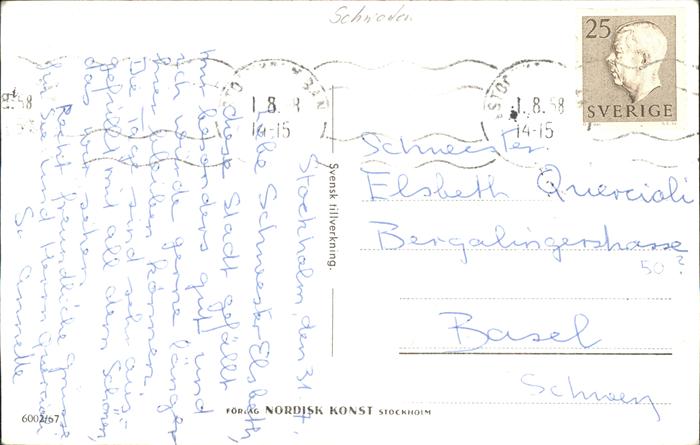 Schweden
25
SVERIGE
STO
1.8.58
14-15
1.8.58
14-15
9.58
Stockholm, den 31. 7.
Liebe Schwester Elsbeth,
diese Stadt gefällt
mir besonders gut und
ich würde gerne länger
hier bleiben können.
Die Tage sind sehr aus-
gefüllt mit all dem Schönen,
das wir sehen.
Recht freundliche Grüsse
für Sie und Herrn Quercioli
Sr. Annelle
Svensk tillverkning.
Schwester
Elsbeth Quercioli
Bergalingerstrasse
50?
Basel
Schweiz
6002/67
FÖRLAG NORDISK KONST STOCKHOLM